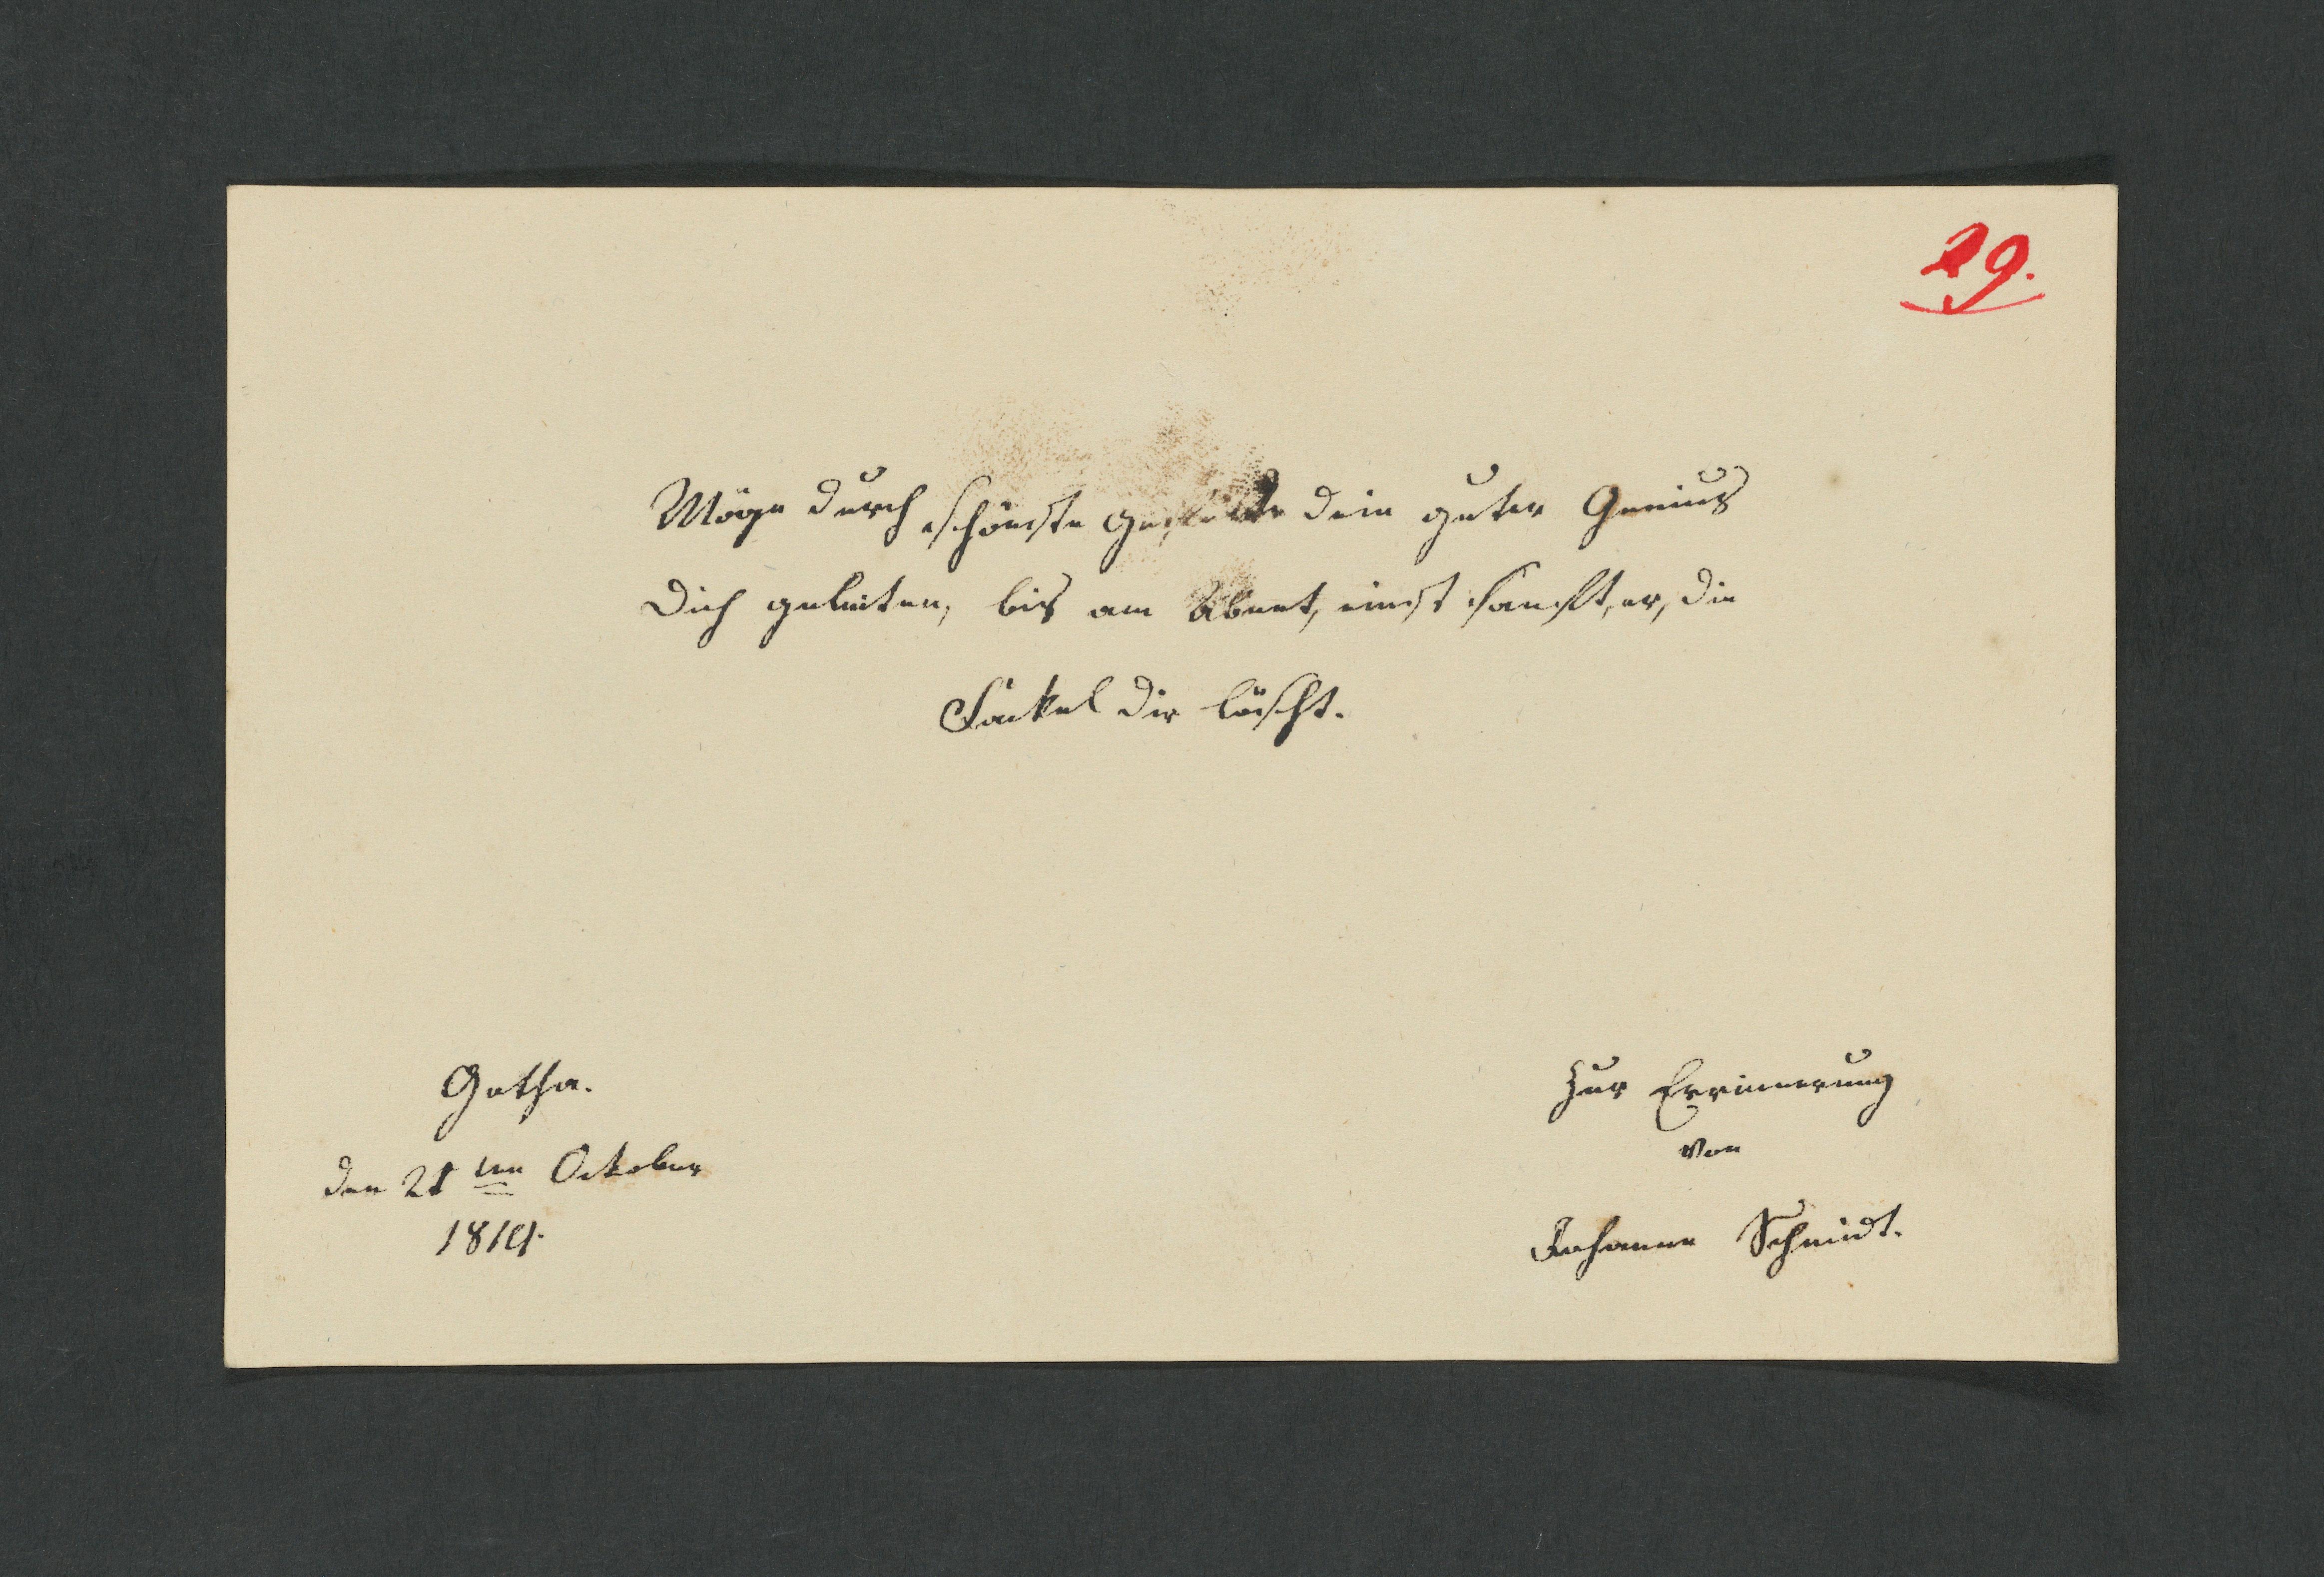 29.
Möge durch schönste Gefilde dein guter Genius
dich geleiten, bis am Abent, einst sanft, er, die
Fackel dir löscht.
Gotha.
den 21ten October
1819.
Zur Errinnerung
von
Johanne Schmidt.